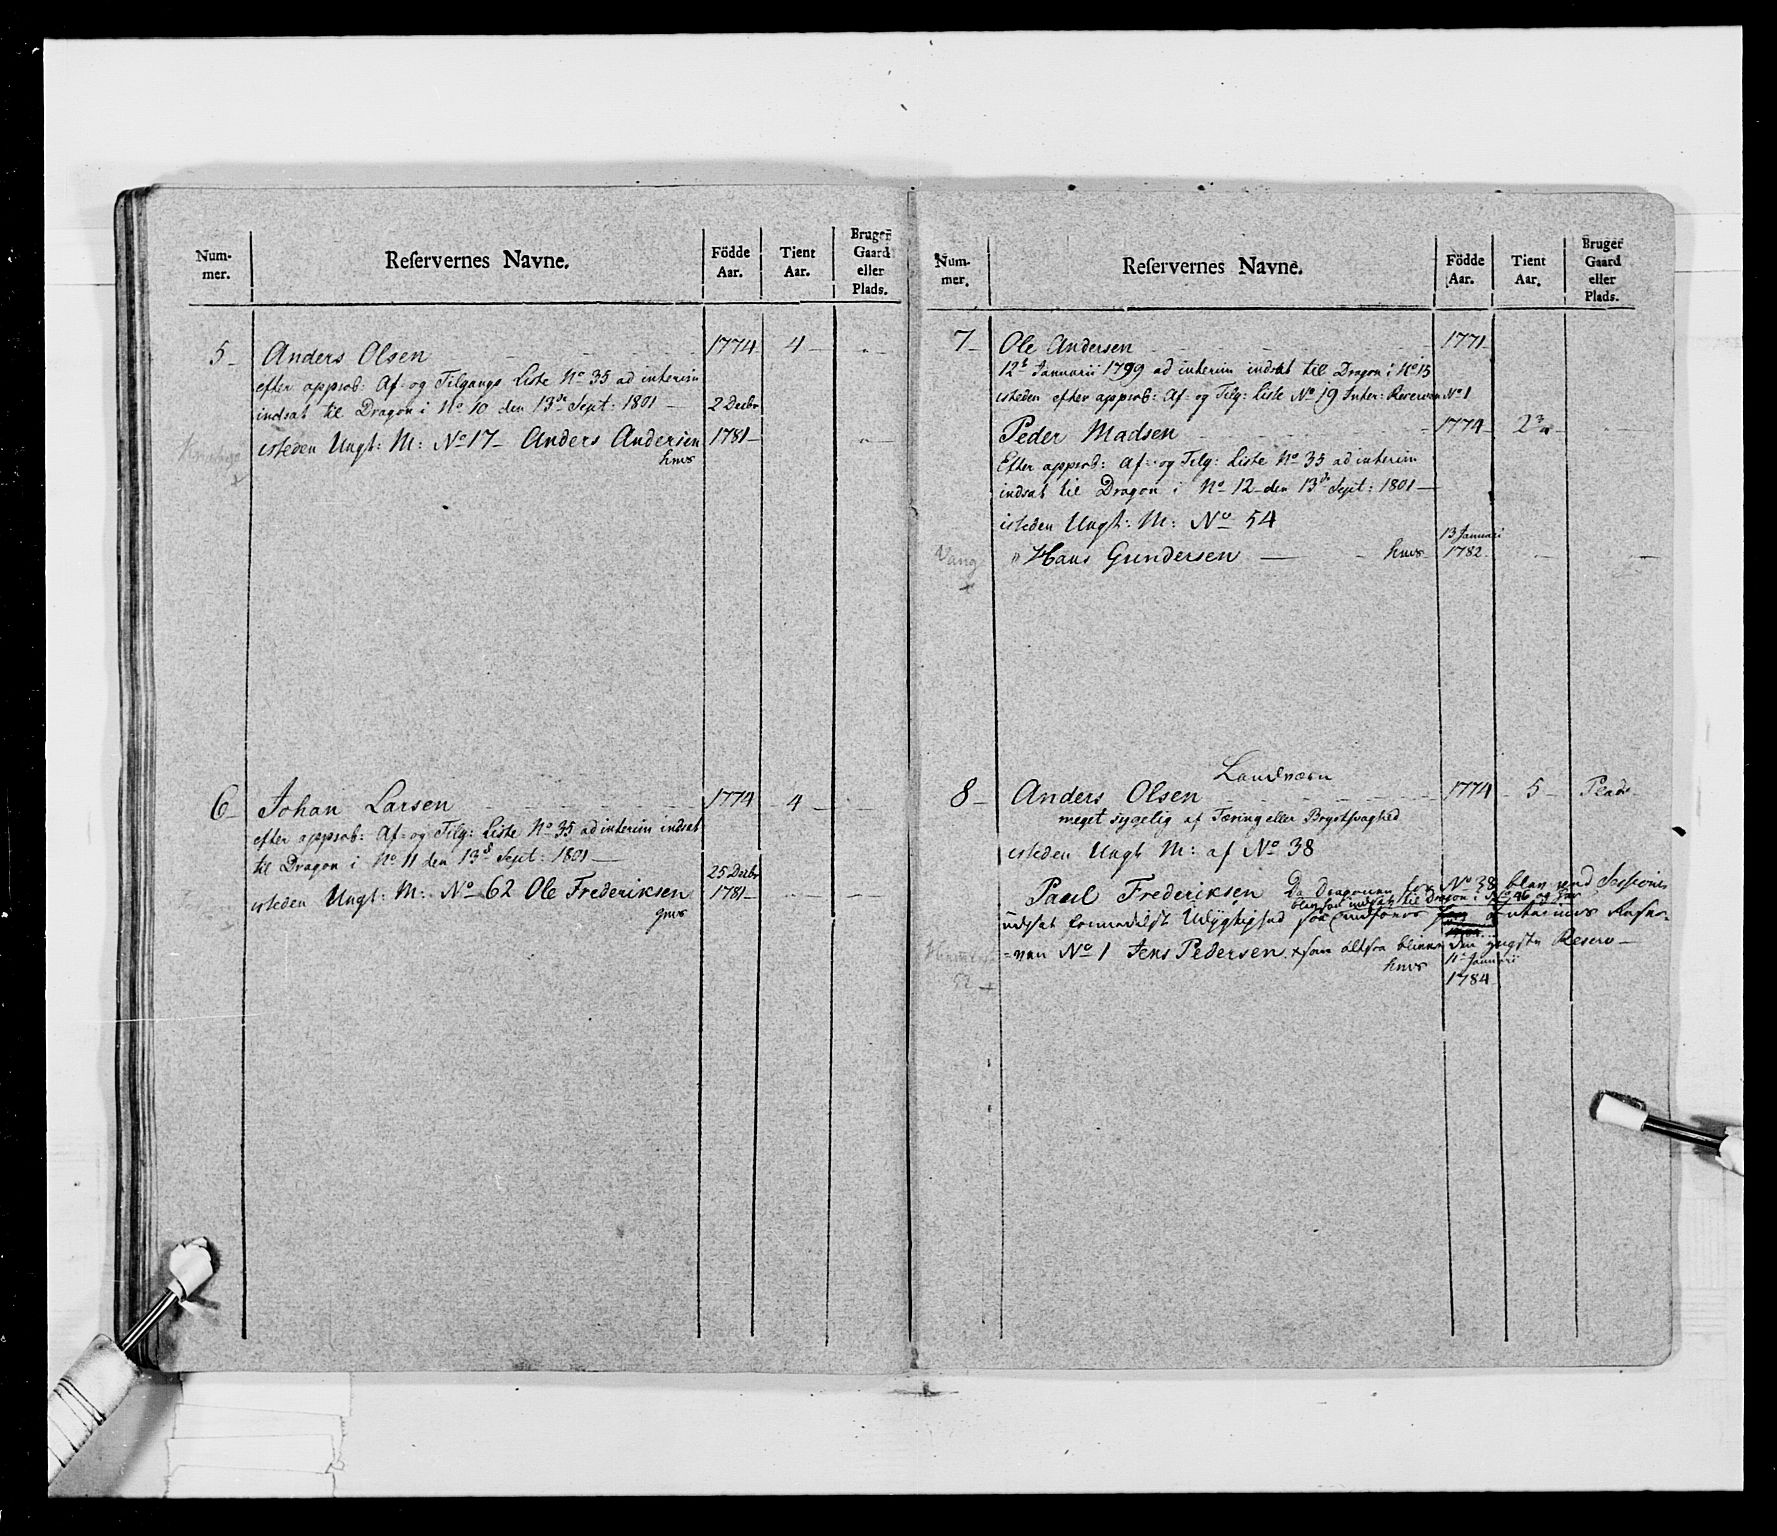 Num-
mer.
Reſervernes Navne.
Födde
Aar.
Tient
Aar.
Bruger
Gaard
eller
Plads.
5 Anders Olsen 1774 4
efter approb: Af= og Tilgangs Liste No 35 ad interim
indsat til Dragon i No 10 den 13de Sept: 1801 — 2 Decbr
isteden Ungt: M: No 17 — Anders Andersen 1781 —
hmds
6 Johan Larsen 1774 4
efter approb: Af= og Tilg: Liste No 35 ad interim indsat
til Dragon i No 11 den 13de Sept: 1801 —
25 Decbr
isteden Ungt: M: No 62 Ole Frederiksen 1781 —
Num-
mer.
Reſervernes Navne.
Födde
Aar.
Tient
Aar.
Bruger
Gaard
eller
Plads.
7 Ole Andersen 1771
12te Januarii 1799 ad interim indsat til Dragon i No 15
isteden efter approb: Af= og Tilg: Liste No 19 Inter: Reserven No 1
Peder Madsen 1774 2
Efter approb: Af= og Tilg: Liste No 35 ad interim
indsat til Dragon i No 12 den 13de Sept: 1801 —
isteden Ungt: M: No 54
13 Januari
Vang " Hans Gundersen — hmds 1782
Landværn
8 Anders Olsen 1774 5 Plads
meget sygelig af Tæring eller Brystsvaghed
isteden Ungt M: af No 38
Paul Frederiksen Da Dragonen for No 38 blev ved Sessionen
blev indsat til Dragon i No 46 og
udsat formedelst Udygtighed
No 1 Jens Pedersen som altsaa bliver den yngste Reserv —
hmds
11 Januarii
1784